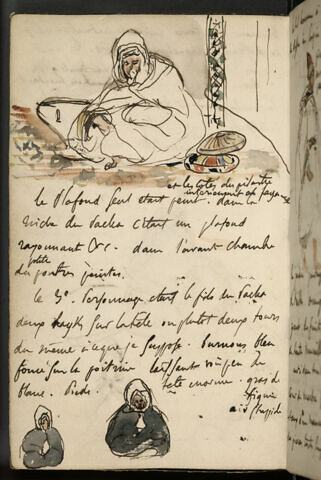 et les côtés du pilastre
intérieurement en faye
le Plafond seul était peint. dans la
niche du Pacha c'était un plafond
rayonnant &c. dans l'avant chambre
ptite
des poutres peintes.
le 3e. Personnage était le fils du Pacha
deux hayks sur la tête ou plutôt deux tours
du même à ce que je suppose. Burnous bleu
foncé sur la poitrine laissant voir un peu de
blanc. Pieds.
tête énorme. gras de
figure
air stupide